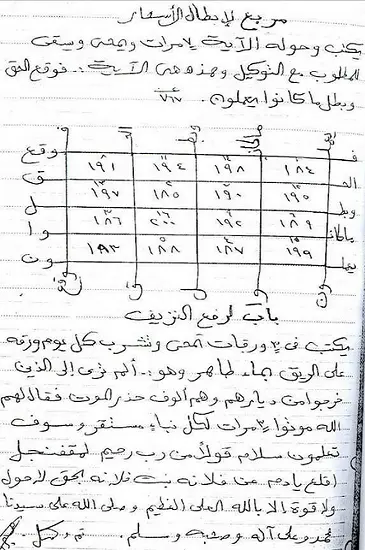 مربع لإبطال الأسحار
يكتب وحوله الآية ٧ مرات ويمحى ويسقى
للمطلوب مع التوكيل وهذه هى الآية :. فوقع الحق
وبطل ما كانوا يعملون . ٧٦٧
١٩١ ١٩٤ ١٩٨ ١٨٤
١٩٧ ١٨٥ ١٩٠ ١٩٥
١٨٦ ٢٠٠ ١٩٢ ١٨٩
١٩٣ ١٨٨ ١٨٧ ١٩٩
باب لرفع النزيف
يكتب فى ٣ ورقات تمحى وتشرب كل يوم ورقه
على الريق بماء طاهر وهو :. ألم ترى إلى الذين
خرجوا من ديارهم وهم ألوف حذر الموت فقال لهم
الله موتوا ٣ مرات لكل نباء مستقر وسوف
تعلمون سلام قولاً من رب رحيم
اقلع يا دم من فلانه بنت فلانه بحق لا حول
ولا قوة الا بالله العلى العظيم وصلى الله على سيدنا
محمد وعلى آله وصحبه وسلم .